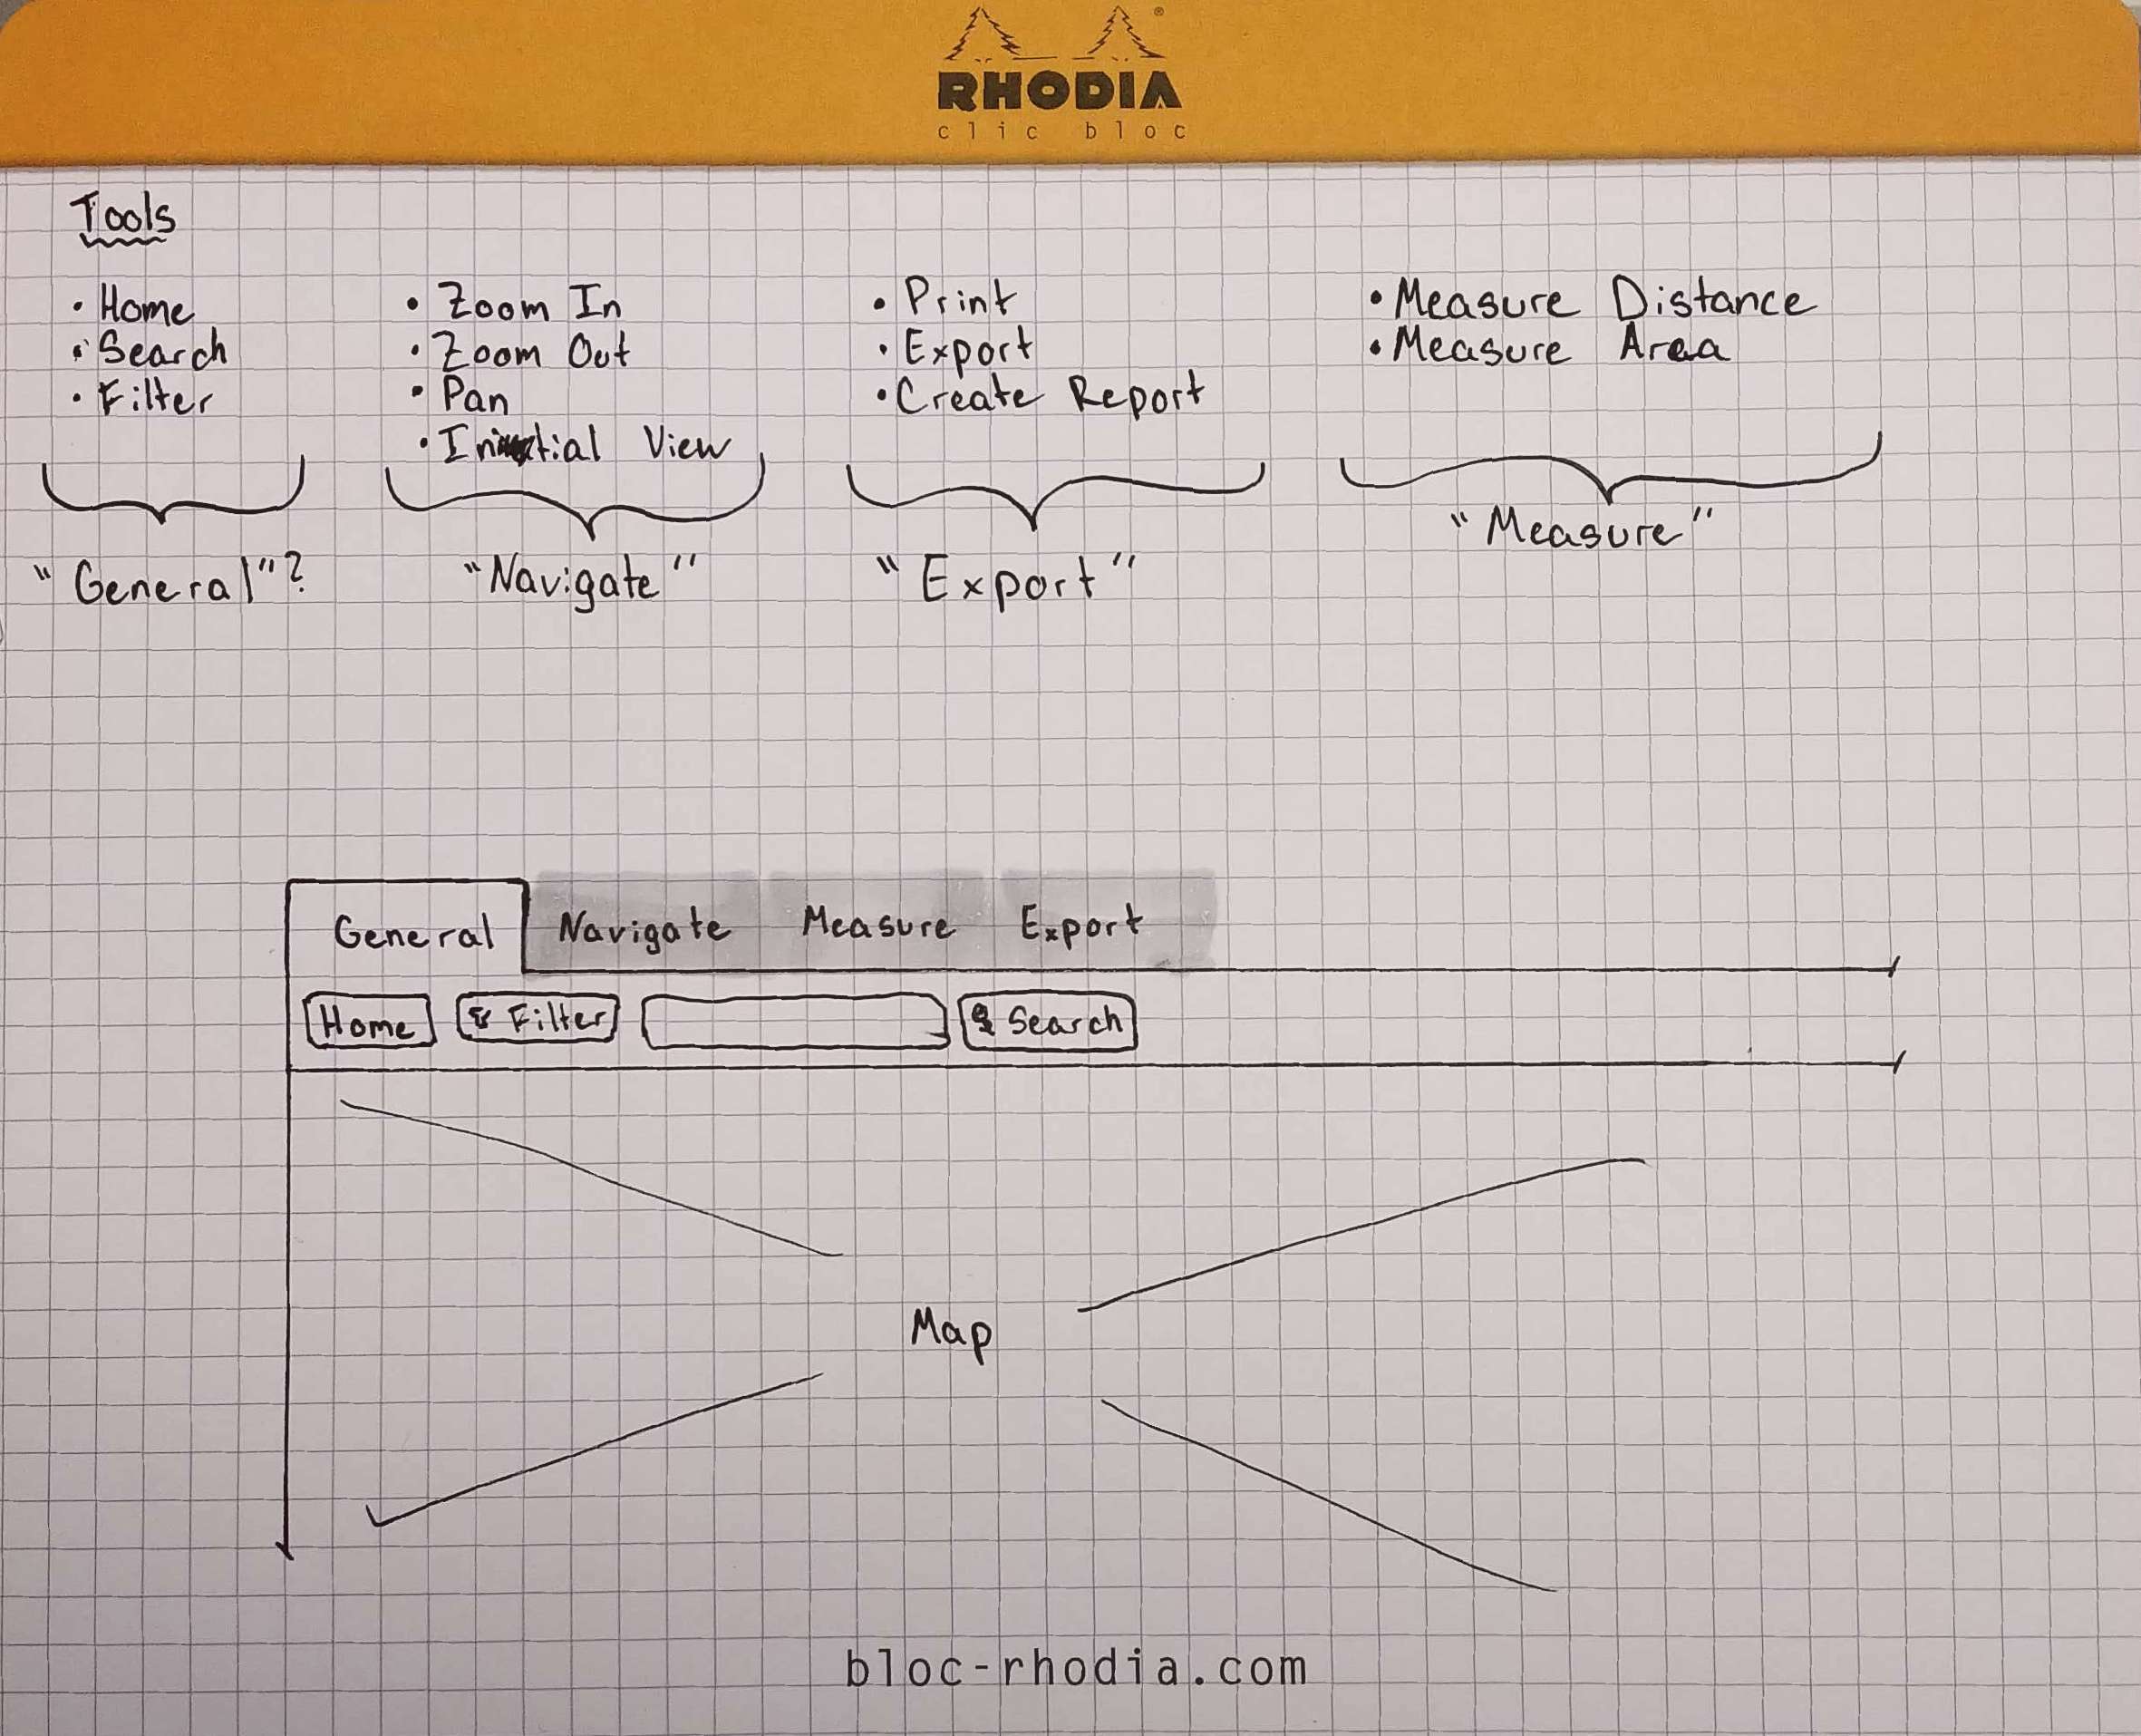 RHODIA
®
clic bloc
Tools
• Home
• Search
• Filter
"General"?
• Zoom In
• Zoom Out
• Pan
• Initial View
"Navigate"
• Print
• Export
• Create Report
"Export"
• Measure Distance
• Measure Area
"Measure"
General Navigate Measure Export
Home Filter Search
Map
bloc-rhodia.com